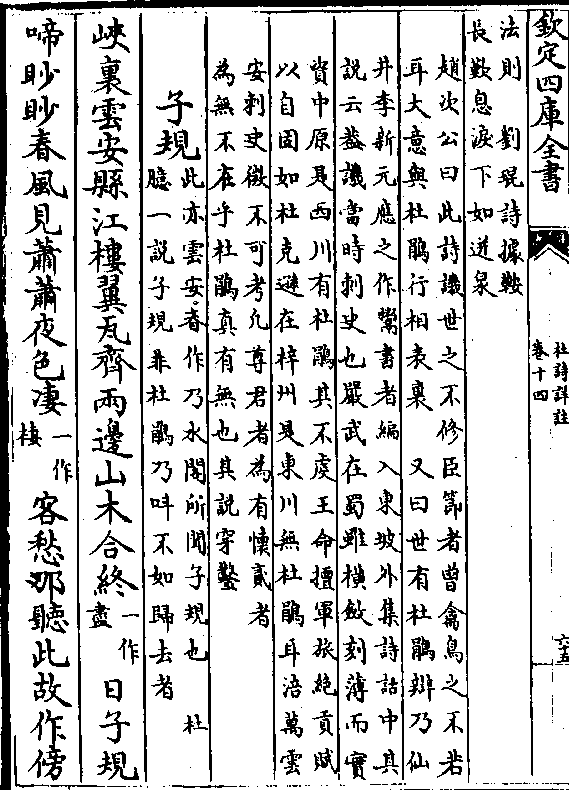 欽定四庫全書
杜詩詳註
卷十四
六五
法則　劉琨詩據鞍
長歎息淚下如迸泉
趙次公曰此詩譏世之不修臣節者曾禽鳥之不若
耳大意與杜鵑行相表裏　又曰世有杜鵑辨乃仙
井李新元應之作鬻書者編入東坡外集詩話中其
說云葢譏當時刺史也嚴武在蜀雖橫斂刻薄而實
資中原是西川有杜鵑其不虔王命擅軍旅絶貢賦
以自固如杜克遜在梓州是東川無杜鵑耳涪萬雲
安刺史微不可考凡尊君者為有懷貳者
為無不在乎杜鵑真有無也其說穿鑿
子規
此亦雲安春作乃水閣所聞子規也　杜
臆一說子規非杜鵑乃叫不如歸去者
峽裏雲安縣江樓翼瓦齊兩邊山木合終一作盡日子規
啼眇眇春風見蕭蕭夜色凄一作棲客愁那聽此故作傍